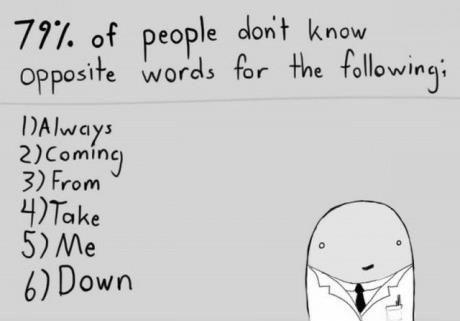 79% of people don't know
opposite words for the following;
1) Always
2) Coming
3) From
4) Take
5) Me
6) Down